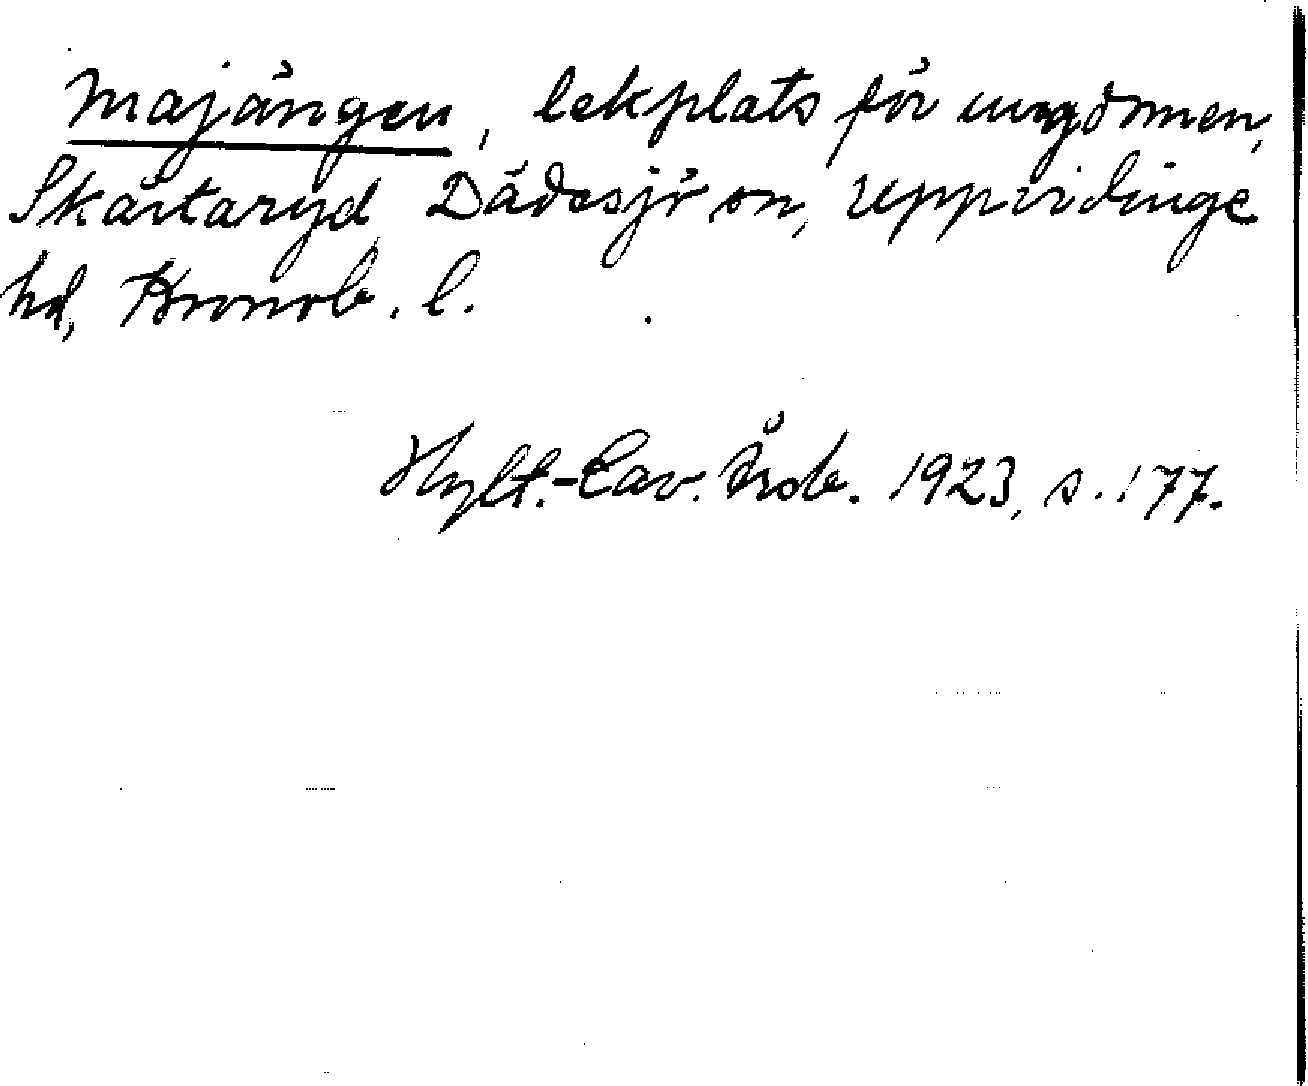 Majängen, lekplats för ungdomen,
Skärtaryd, Dädesjö sn, Uppvidinge
hd, Kronob. l.
Hylt.-Cav. Årsb. 1923, s. 177.